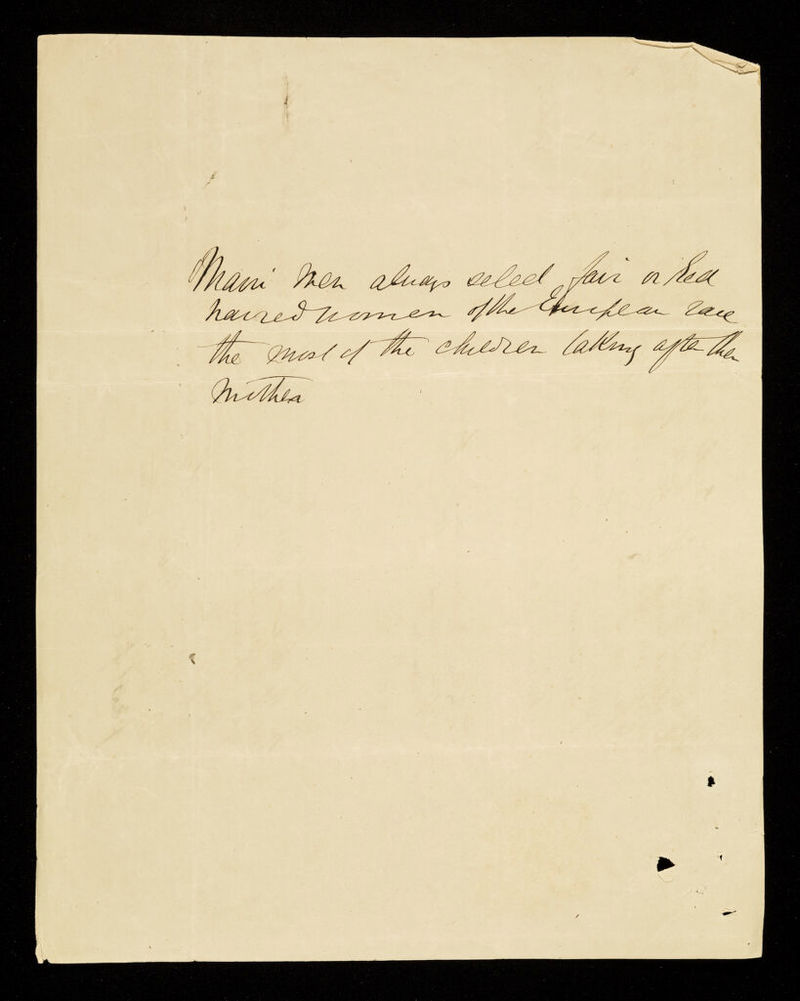 Maori Men always select fair or Red
haired women of the European race
the most of the children taking after their
Mother